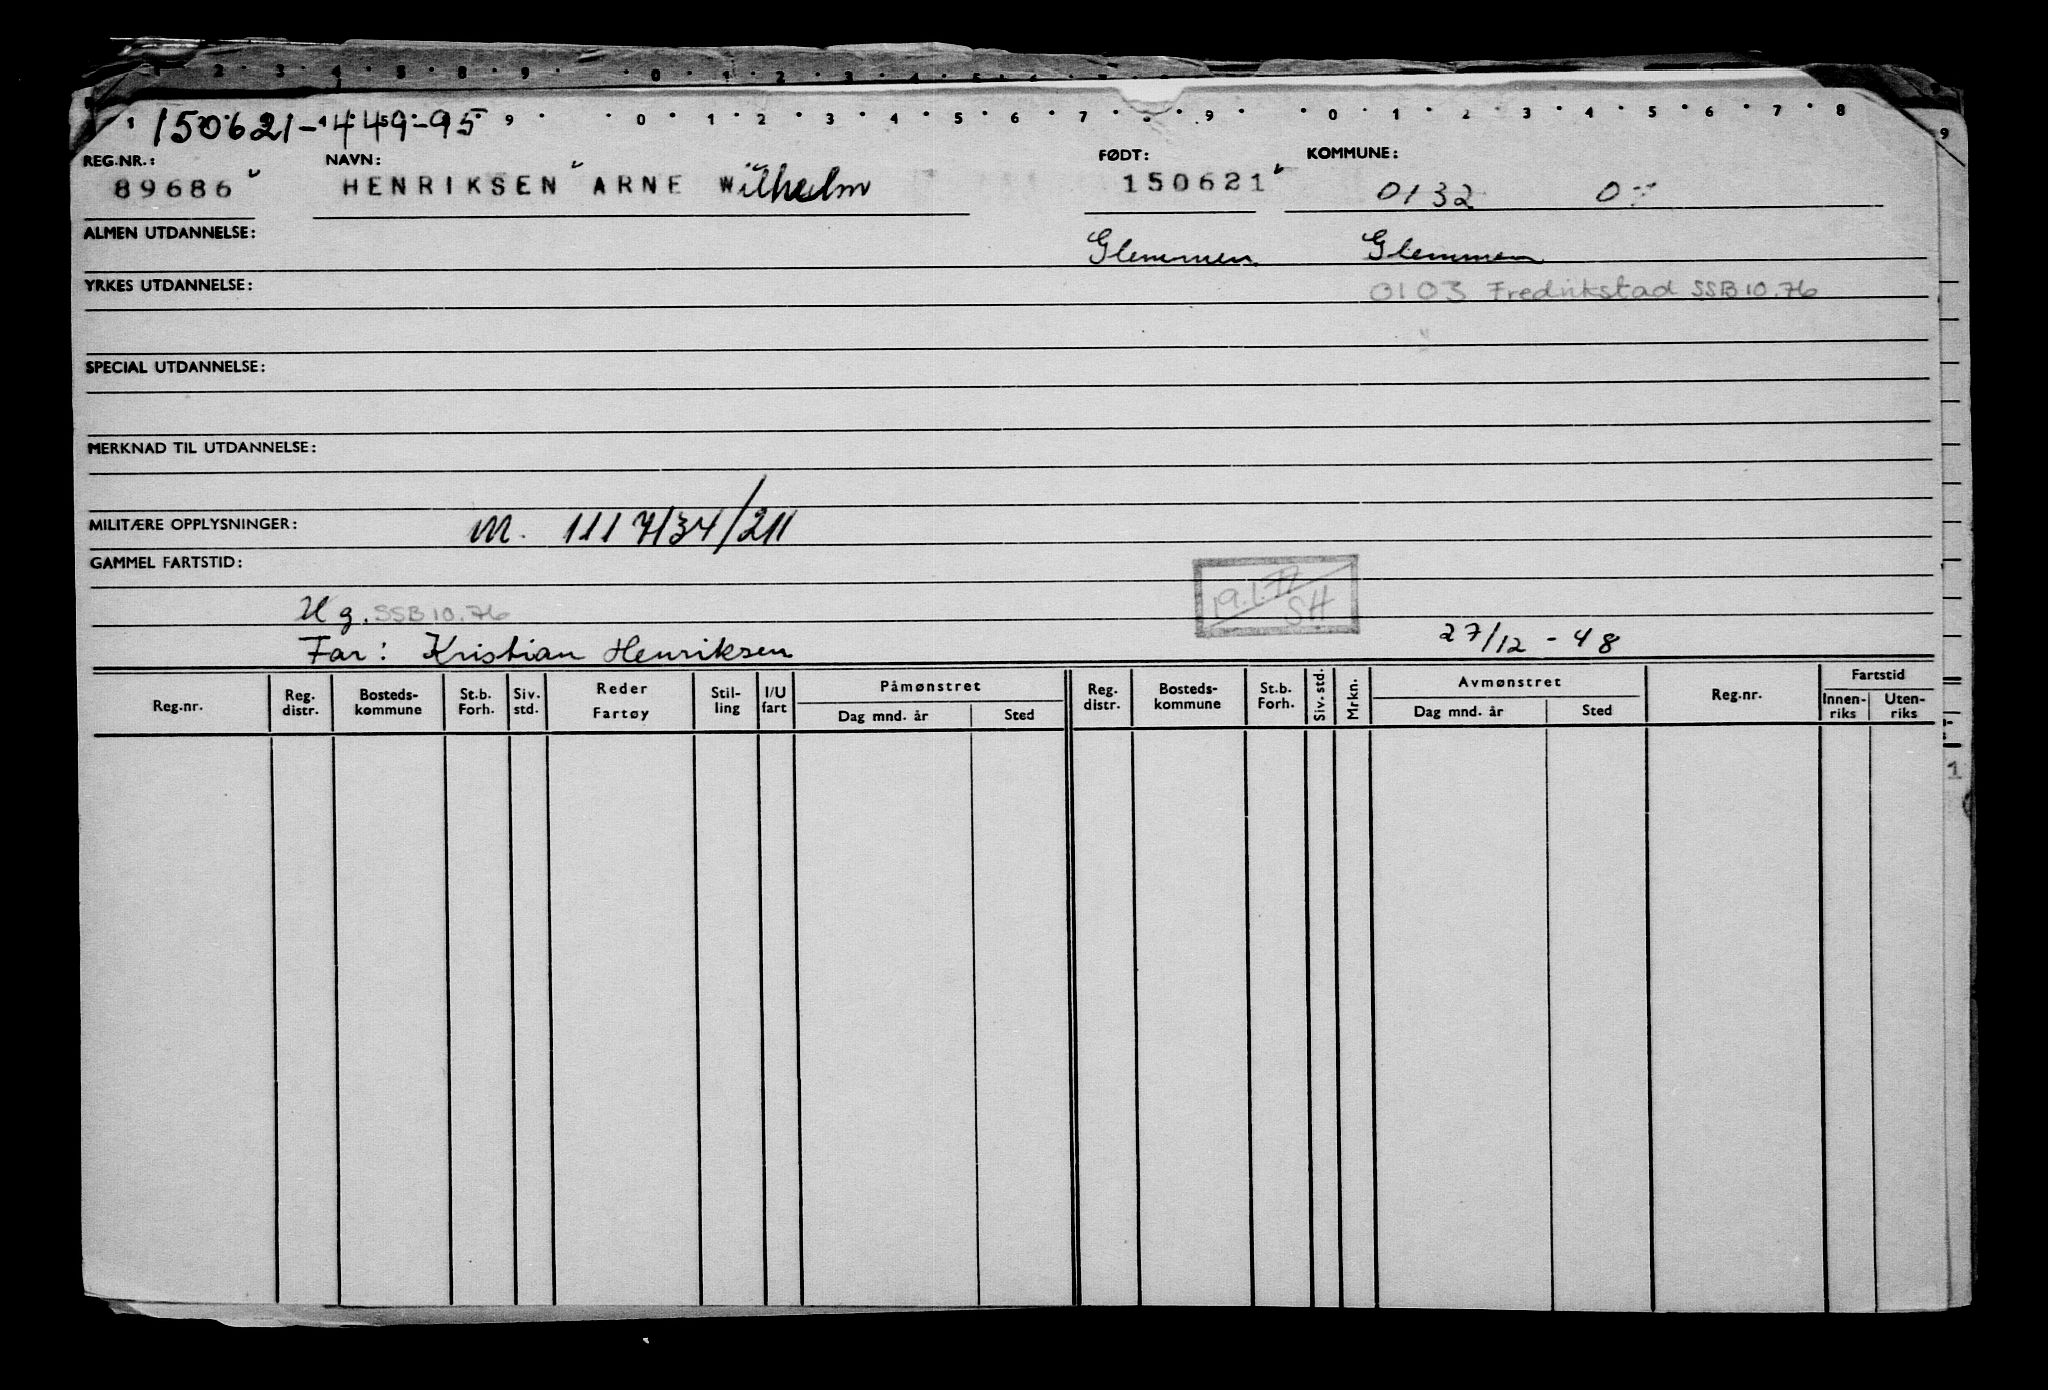 1 2 3 4 5 8 9 0 1 2 3 4 5 6 7
150621-449-95
9 0 1 2 3 4 5 6 7 8 9 0 1 2 3 4 5 6 7 8 9
REG.NR.: NAVN: FØDT: KOMMUNE:
89686 HENRIKSEN ARNE Wilhelm 150621 0132
ALMEN UTDANNELSE: Glemmen Glemmen
YRKES UTDANNELSE: 0103 Fredrikstad SSB 10.76
SPECIAL UTDANNELSE:
MERKNAD TIL UTDANNELSE:
MILITÆRE OPPLYSNINGER: M. 1117/34/211
GAMMEL FARTSTID:
19.1.77
SH
Ug. SSB 10.76
Far: Kristian Henriksen 27/12 - 48
Reg.nr. Reg. distr. Bosteds-kommune St.b. Forh. Siv. std. Reder Fartøy Stil-ling I/U fart Påmønstret Dag mnd. år Sted Reg. distr. Bosteds-kommune St.b. Forh. Siv. std. Mrkn. Avmønstret Dag mnd. år Sted Reg.nr. Fartstid Innen-riks Uten-riks
1